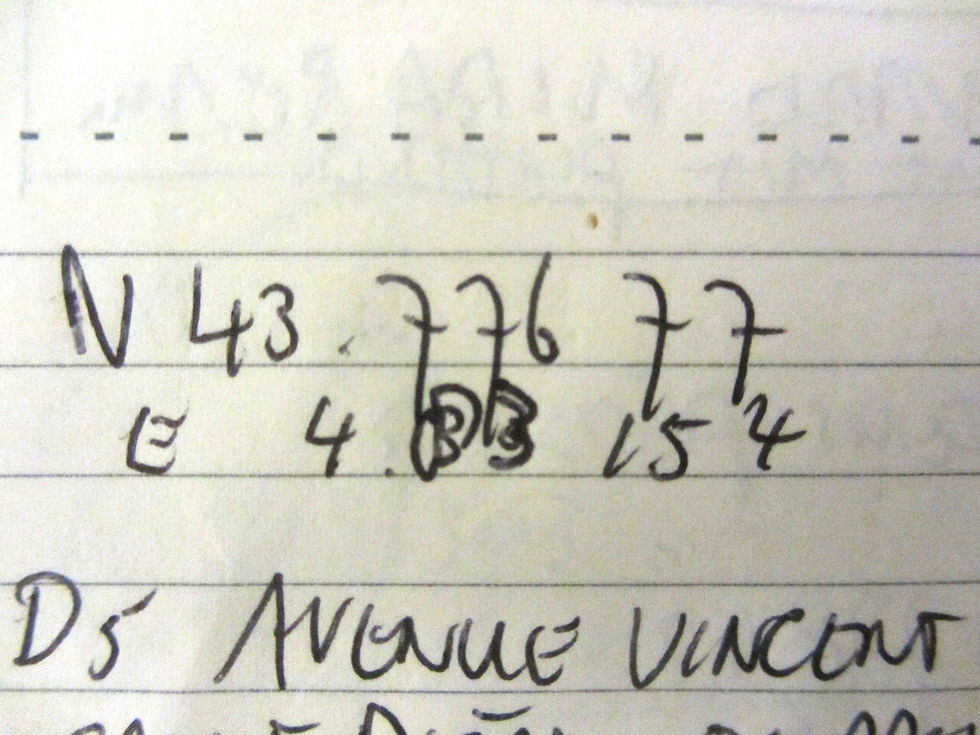 N 43.776 77
E 4.83 154
D5 AVENUE VINCENT